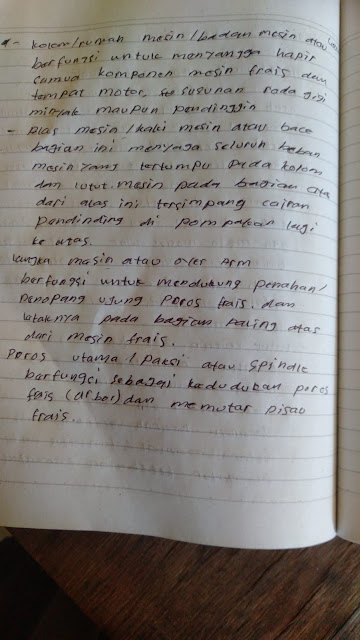 a- kolom/rumah mesin/badan mesin atau
berfungsi untuk menyangga hapir
semua komponen mesin frais dan
tempat motor, susunan roda gigi
minyak maupun pendinggin
- Alas mesin/kaki mesin atau bace
bagian ini menyaga seluruh beban
mesin yang tertumpu pada kolom
dan lutut. mesin pada bagian
dari atas ini tersimpang cairan
pendinding di pompakan lagi
ke atas.
langka masin atau over Arm
berfungsi untuk mendukung penahan/
penopang ujung poros frais. dan
letaknya pada bagian paling atas
dari mesin frais.
Poros utama/paksi atau spindle
berfungsi sebagai kedudukan poros
fais (arbor) dan memutar pisau
frais.